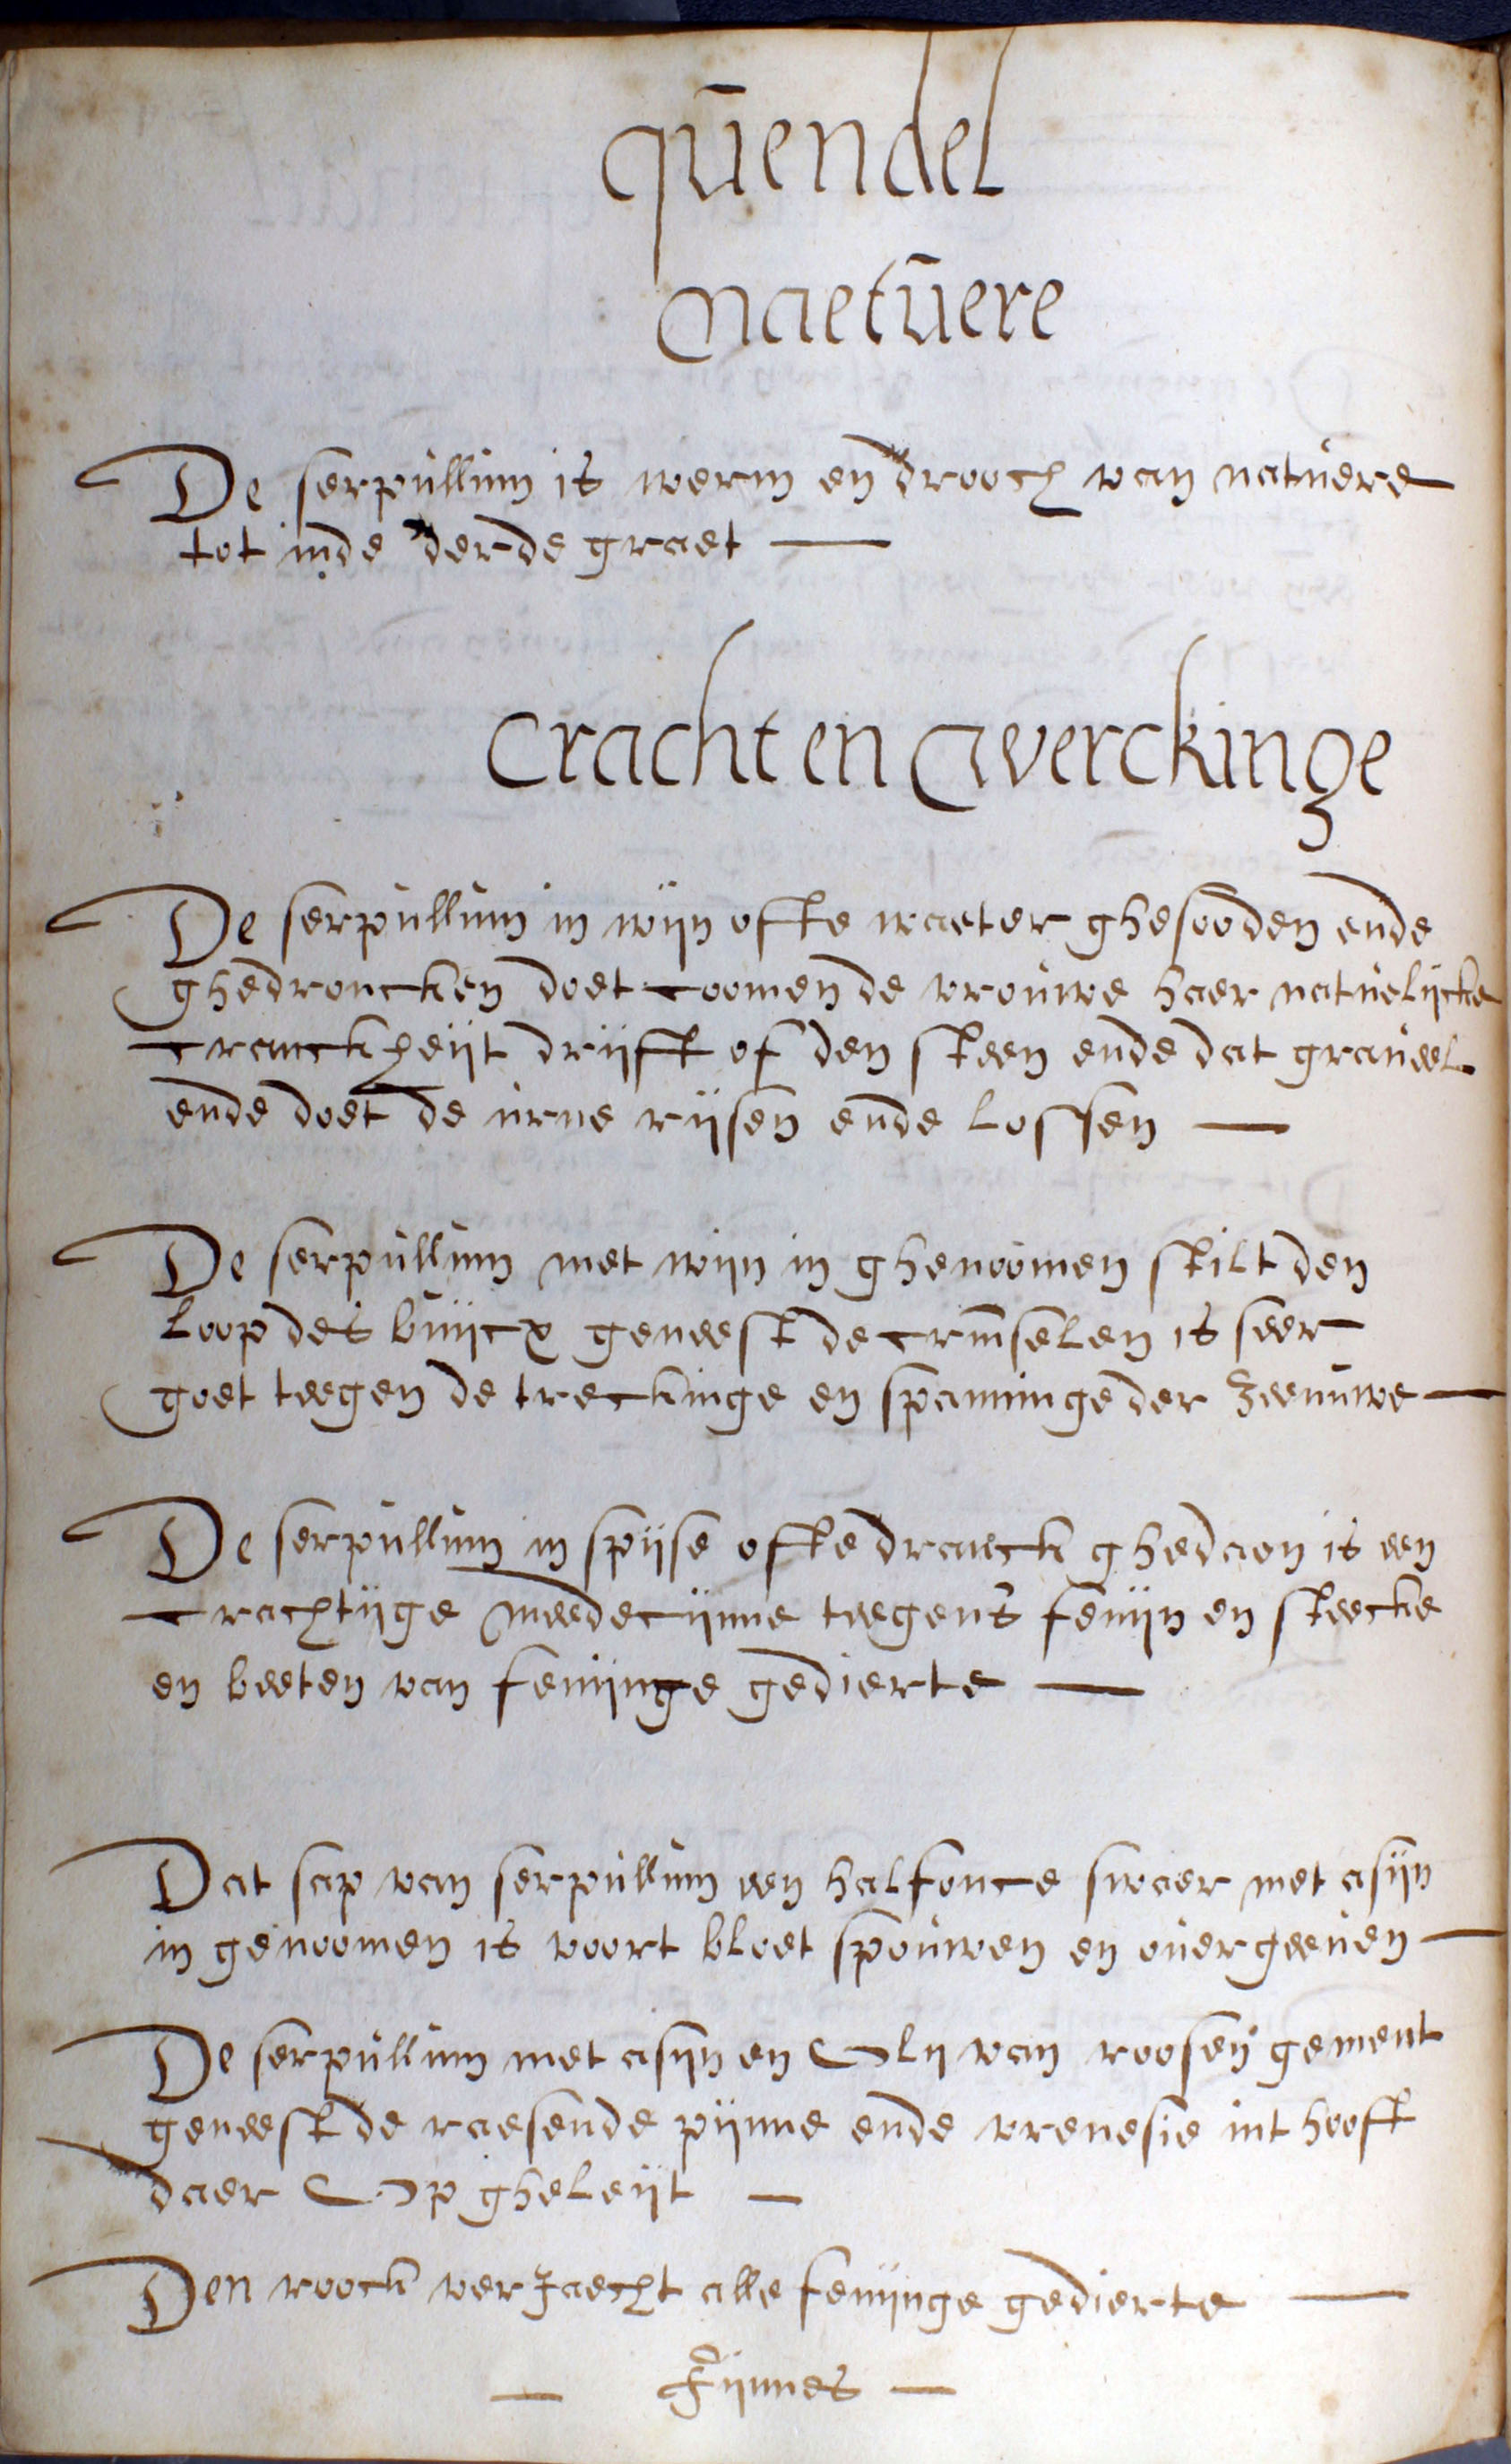 quendel
naetuere
De serpullum is werm en drooch van natuere
tot inde derde graet
cracht en werckinge
De serpullum in wijn ofte waeter ghesooden ende
ghedroncken doet coomen de vrouwe haer natuelijcke
cranckheijt drijft of den steen ende dat graueel
ende doet de urne rijsen ende lossen
De serpullum met wijn in ghenoomen stilt den
loop des buijcx geneest de crimselen is seer
goet teegen de treckinge en spanninge der zeenuwe
De serpullum in spijse ofte dranck ghedaen is een
crachtijge meedecijnne teegens fenijn en steecke
en beeten van fenijnge gedierte
Dat sap van serpullum een half once swaer met asijn
in genoomen is voort bloet spouwen en ouergeeuen
De serpullum met asijn en olij van roosen gement
geneest de raesende pijnne ende vrenesie int hooft
daer op gheleijt
Den roock verjaecht alle fenijnge gedierte
Fijnnes